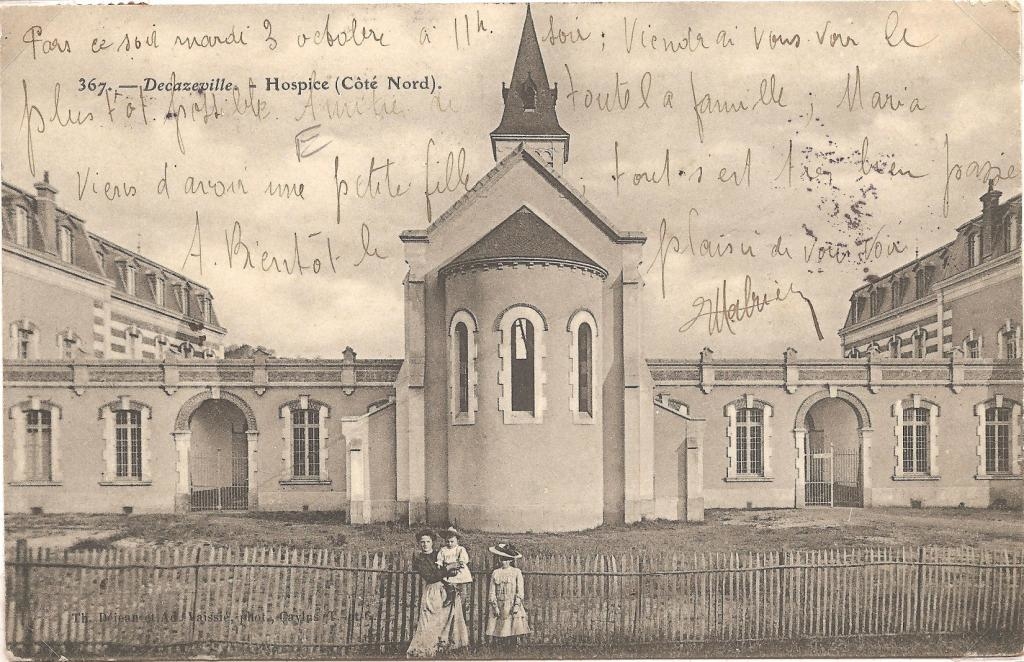 Pars ce soir mardi 3 octobre à 11h. soir; Viendrai vous voir le
367. — Decazeville. - Hospice (Côté Nord).
plus tôt possible Amitié de toute la famille; Maria
E
Viens d'avoir une petite fille; tout s'est très bien passé
A. Bientôt le plaisir de vous voir
Th. Dejean et Ad. Vaissié, phot., Caylus (T.-et-G.